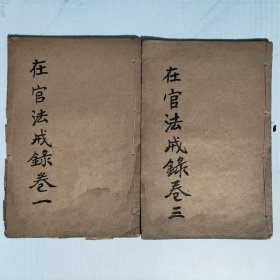 在官法戒錄卷一
在官法戒錄卷三